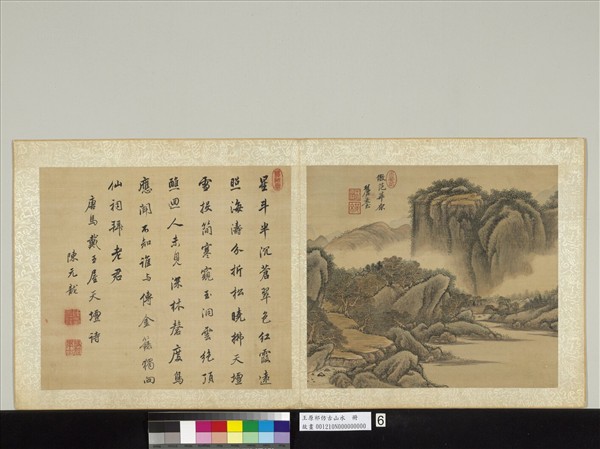 倣范華原
麓臺
星斗半沉蒼翠色紅霞遠
照海濤分折松曉拂天壇
雪投簡寒窺玉洞雲絕頂
醮回人未見深林磬度鳥
應聞不知誰與傳金籙獨向
仙祠拜老君
唐馬戴王屋天壇詩
陳元龍
王原祁仿古山水 冊
故畫 001210N000000000
6